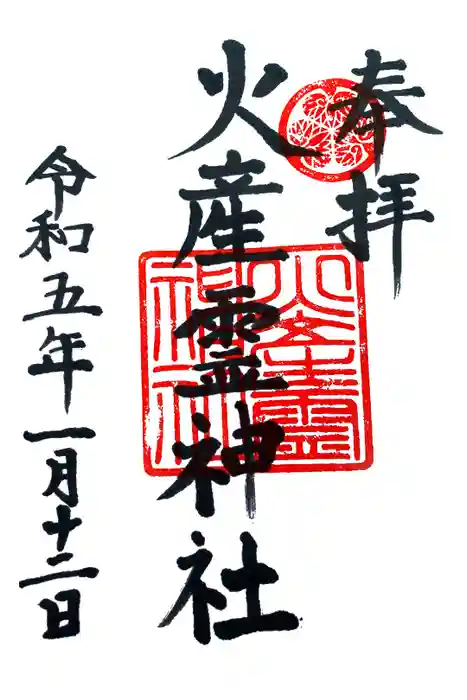 奉拝
火産霊神社
火産霊
神社
令和五年一月十二日